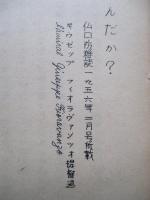 んだか?
仏国防雑誌一九五六年二月号所載
ギウゼップ フィオラヴァンツオ提督
Admiral Giuseppe Fioravanzo